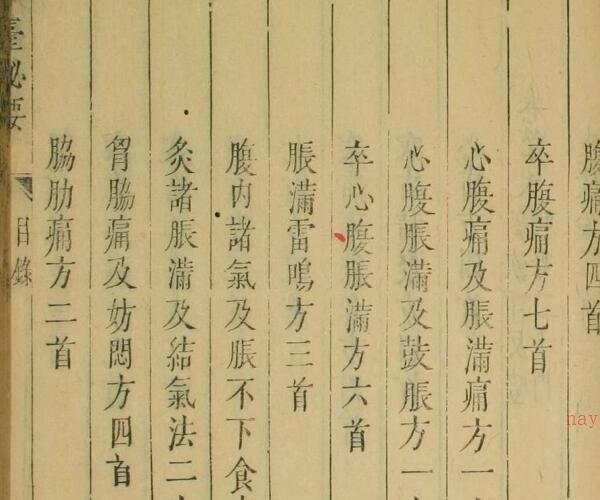 腹痛方四首
卒腹痛方七首
心腹痛及脹滿痛方一
心腹脹滿及鼓脹方一
卒心腹脹滿方六首
脹滿雷鳴方三首
腹内諸氣及脹不下食
灸諸脹滿及結氣法二
胷脇痛及妨悶方四首
脇肋痛方二首
臺秘要
目錄
nay